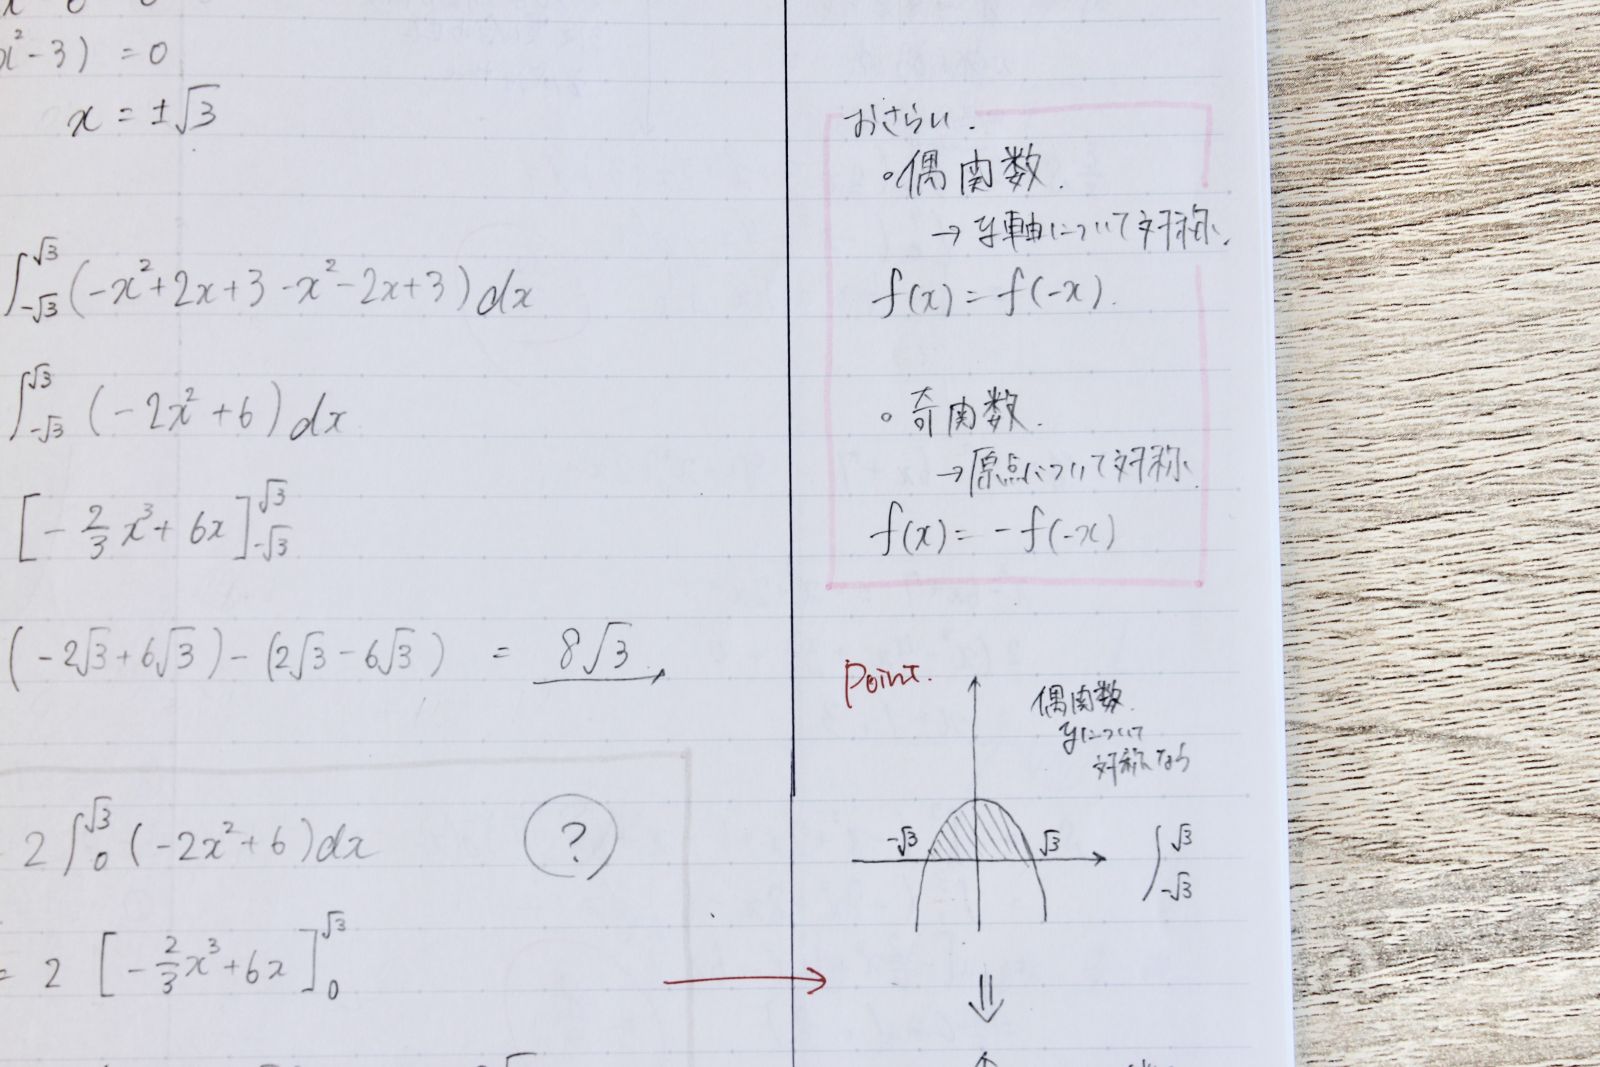 x² - 3) = 0
x = ±√3
∫_{-√3}^{√3} (-x² + 2x + 3 - x² - 2x + 3) dx
∫_{-√3}^{√3} (-2x² + 6) dx
[-2/3 x³ + 6x]_{-√3}^{√3}
(-2√3 + 6√3) - (2√3 - 6√3) = 8√3
2∫_{0}^{√3} (-2x² + 6) dx ?
= 2 [-2/3 x³ + 6x]_{0}^{√3}
おさらい.
・偶関数.
→ y軸について対称.
f(x) = f(-x).
・奇関数.
→ 原点について対称.
f(x) = -f(-x)
Point.
偶関数.
yについて
対称なら
-√3 √3 ∫_{-√3}^{√3}
⇓